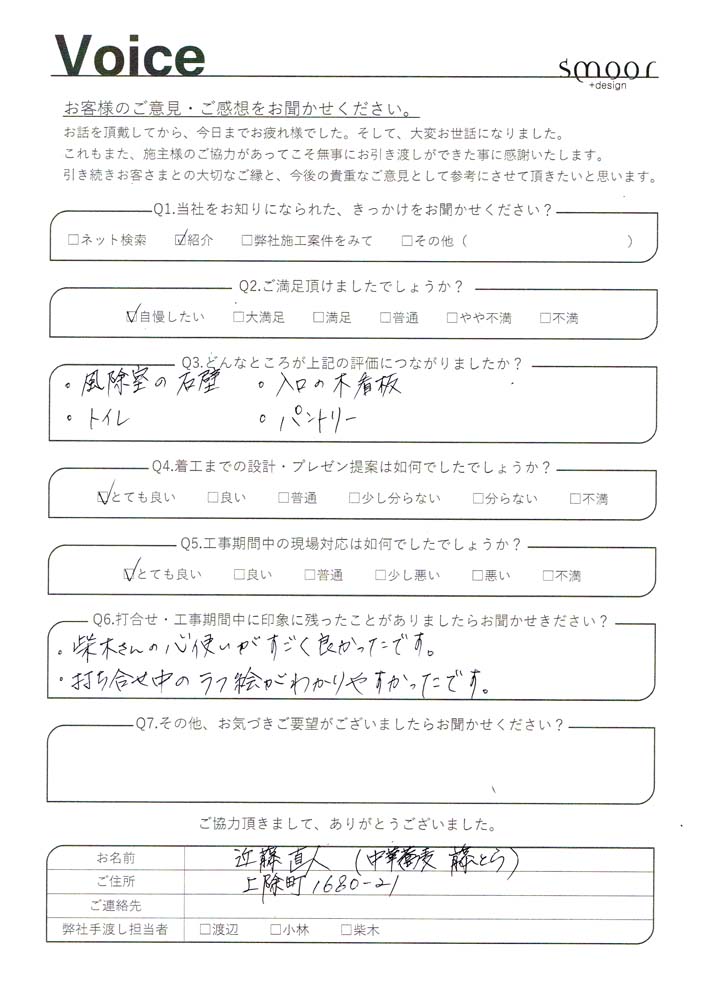 Voice
smoor
+design
お客様のご意見・ご感想をお聞かせください。
お話を頂戴してから、今日までお疲れ様でした。そして、大変お世話になりました。
これもまた、施主様のご協力があってこそ無事にお引き渡しができた事に感謝いたします。
引き続きお客さまとの大切なご縁と、今後の貴重なご意見として参考にさせて頂きたいと思います。
Q1.当社をお知りになられた、きっかけをお聞かせください？
□ネット検索 ☑紹介 □弊社施工案件をみて □その他（ ）
Q2.ご満足頂けましたでしょうか？
☑自慢したい □大満足 □満足 □普通 □やや不満 □不満
Q3.どんなところが上記の評価につながりましたか？
・風除室の石壁 ・入口の木看板
・トイレ ・パントリー
Q4.着工までの設計・プレゼン提案は如何でしたでしょうか？
☑とても良い □良い □普通 □少し分らない □分らない □不満
Q5.工事期間中の現場対応は如何でしたでしょうか？
☑とても良い □良い □普通 □少し悪い □悪い □不満
Q6.打合せ・工事期間中に印象に残ったことがありましたらお聞かせきださい？
・柴木さんの心使いがすごく良かったです。
・打ち合せ中のラフ絵がわかりやすかったです。
Q7.その他、お気づきご要望がございましたらお聞かせください？
ご協力頂きまして、ありがとうございました。
お名前 近藤直人（中華蕎麦 藤とら）
ご住所 上除町1680-21
ご連絡先
弊社手渡し担当者 □渡辺 □小林 □柴木